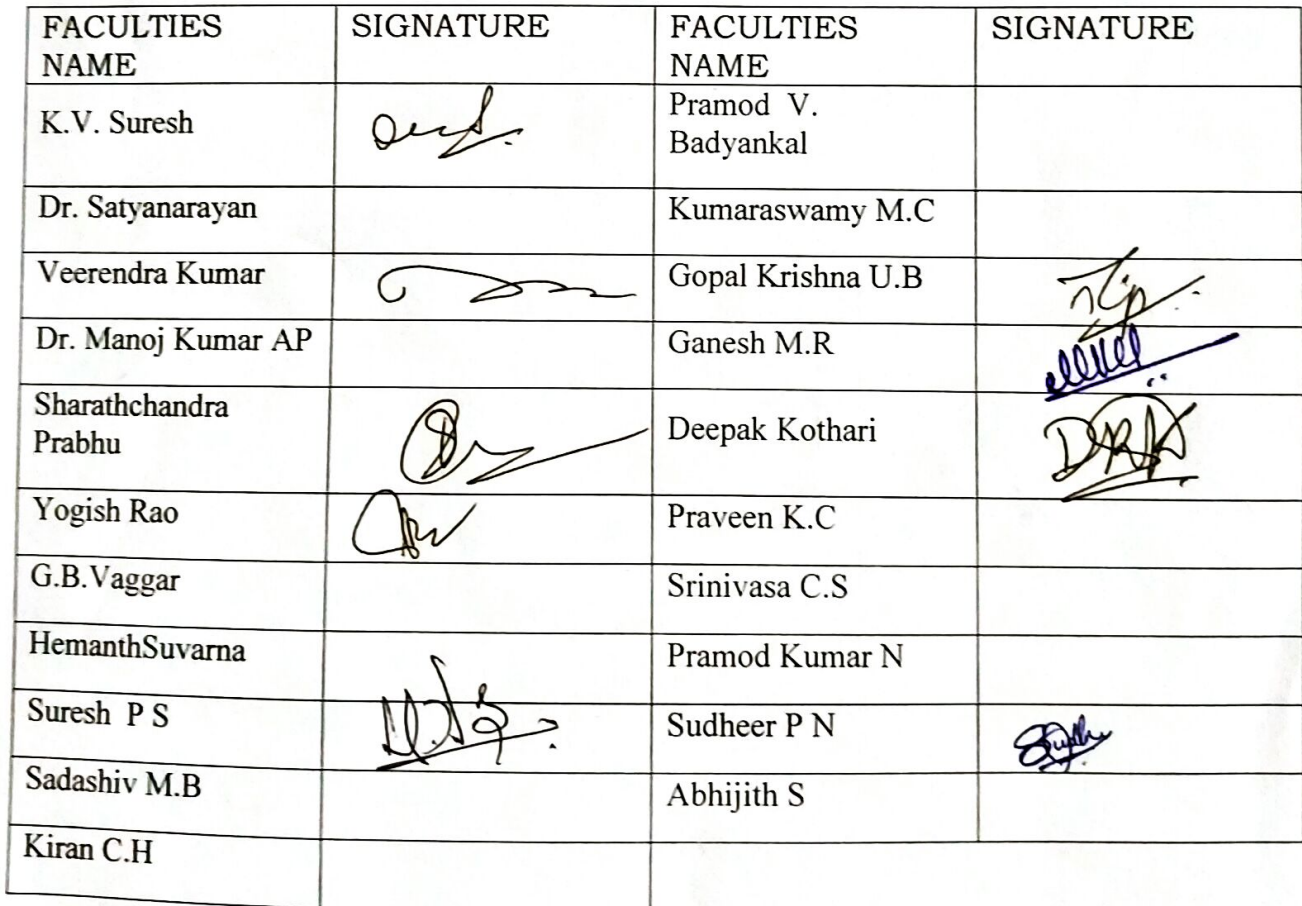 FACULTIES NAME SIGNATURE FACULTIES NAME SIGNATURE
K.V. Suresh Pramod V. Badyankal
Dr. Satyanarayan Kumaraswamy M.C
Veerendra Kumar Gopal Krishna U.B
Dr. Manoj Kumar AP Ganesh M.R
Sharathchandra Prabhu Deepak Kothari
Yogish Rao Praveen K.C
G.B.Vaggar Srinivasa C.S
HemanthSuvarna Pramod Kumar N
Suresh P S Sudheer P N
Sadashiv M.B Abhijith S
Kiran C.H